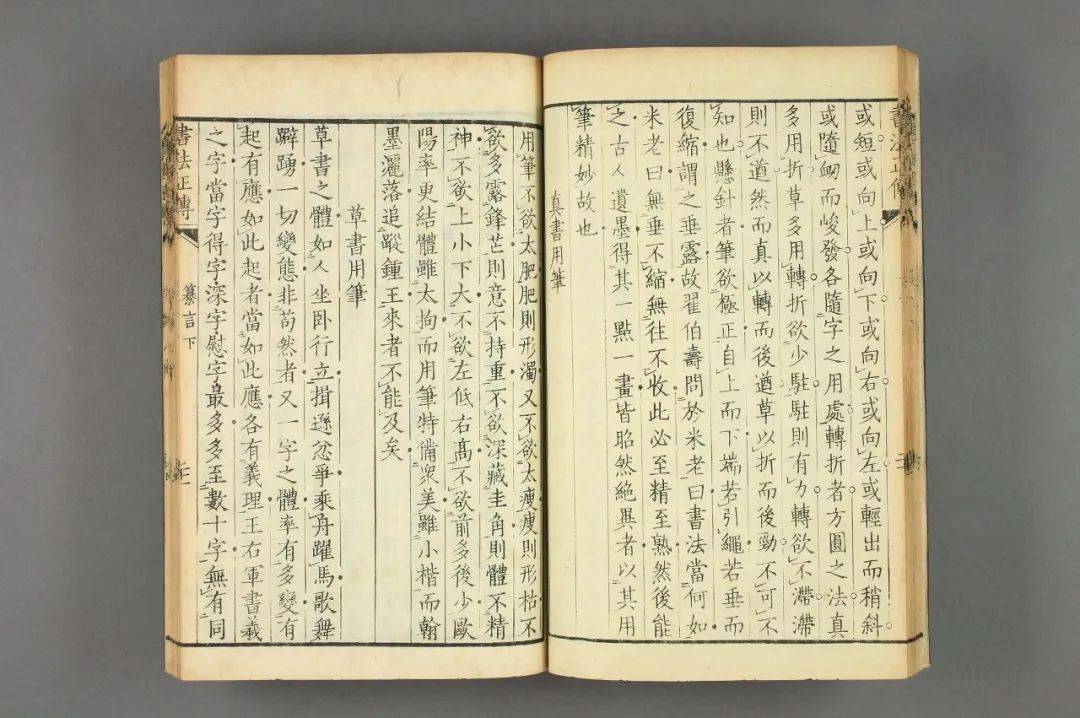 或短或向上或向下或向右或向左或輕出而稍斜
或隨匾而峻發各隨字之用處轉折者方圓之法真
多用折草多用轉折欲少駐駐則有力轉欲不滯滯
則不遒然而真以轉而後遒草以折而後勁不可不
知也懸針者筆欲極正自上而下端若引繩若垂而
復縮謂之垂露故翟伯壽問於米老曰書法當何如
米老曰無垂不縮無往不收此必至精至熟然後能
之古人遺墨得其一點一畫皆昭然絕異者以其用
筆精妙故也
真書用筆
用筆不欲太肥肥則形濁又不欲太瘦瘦則形枯不
欲多露鋒芒則意不持重不欲深藏圭角則體不精
神不欲上小下大不欲左低右高不欲前多後少歐
陽率更結體雖太拘而用筆特備衆美雖小楷而翰
墨灑落追蹤鍾王來者不能及矣
草書用筆
草書之體如人坐卧行立揖遜忿爭乘舟躍馬歌舞
躃踴一切變態非苟然者又一字之體率有多變有
起有應如此起者當如此應各有義理王右軍書羲
之字當字得字深字慰字最多多至數十字無有同
書法正傳
纂言下